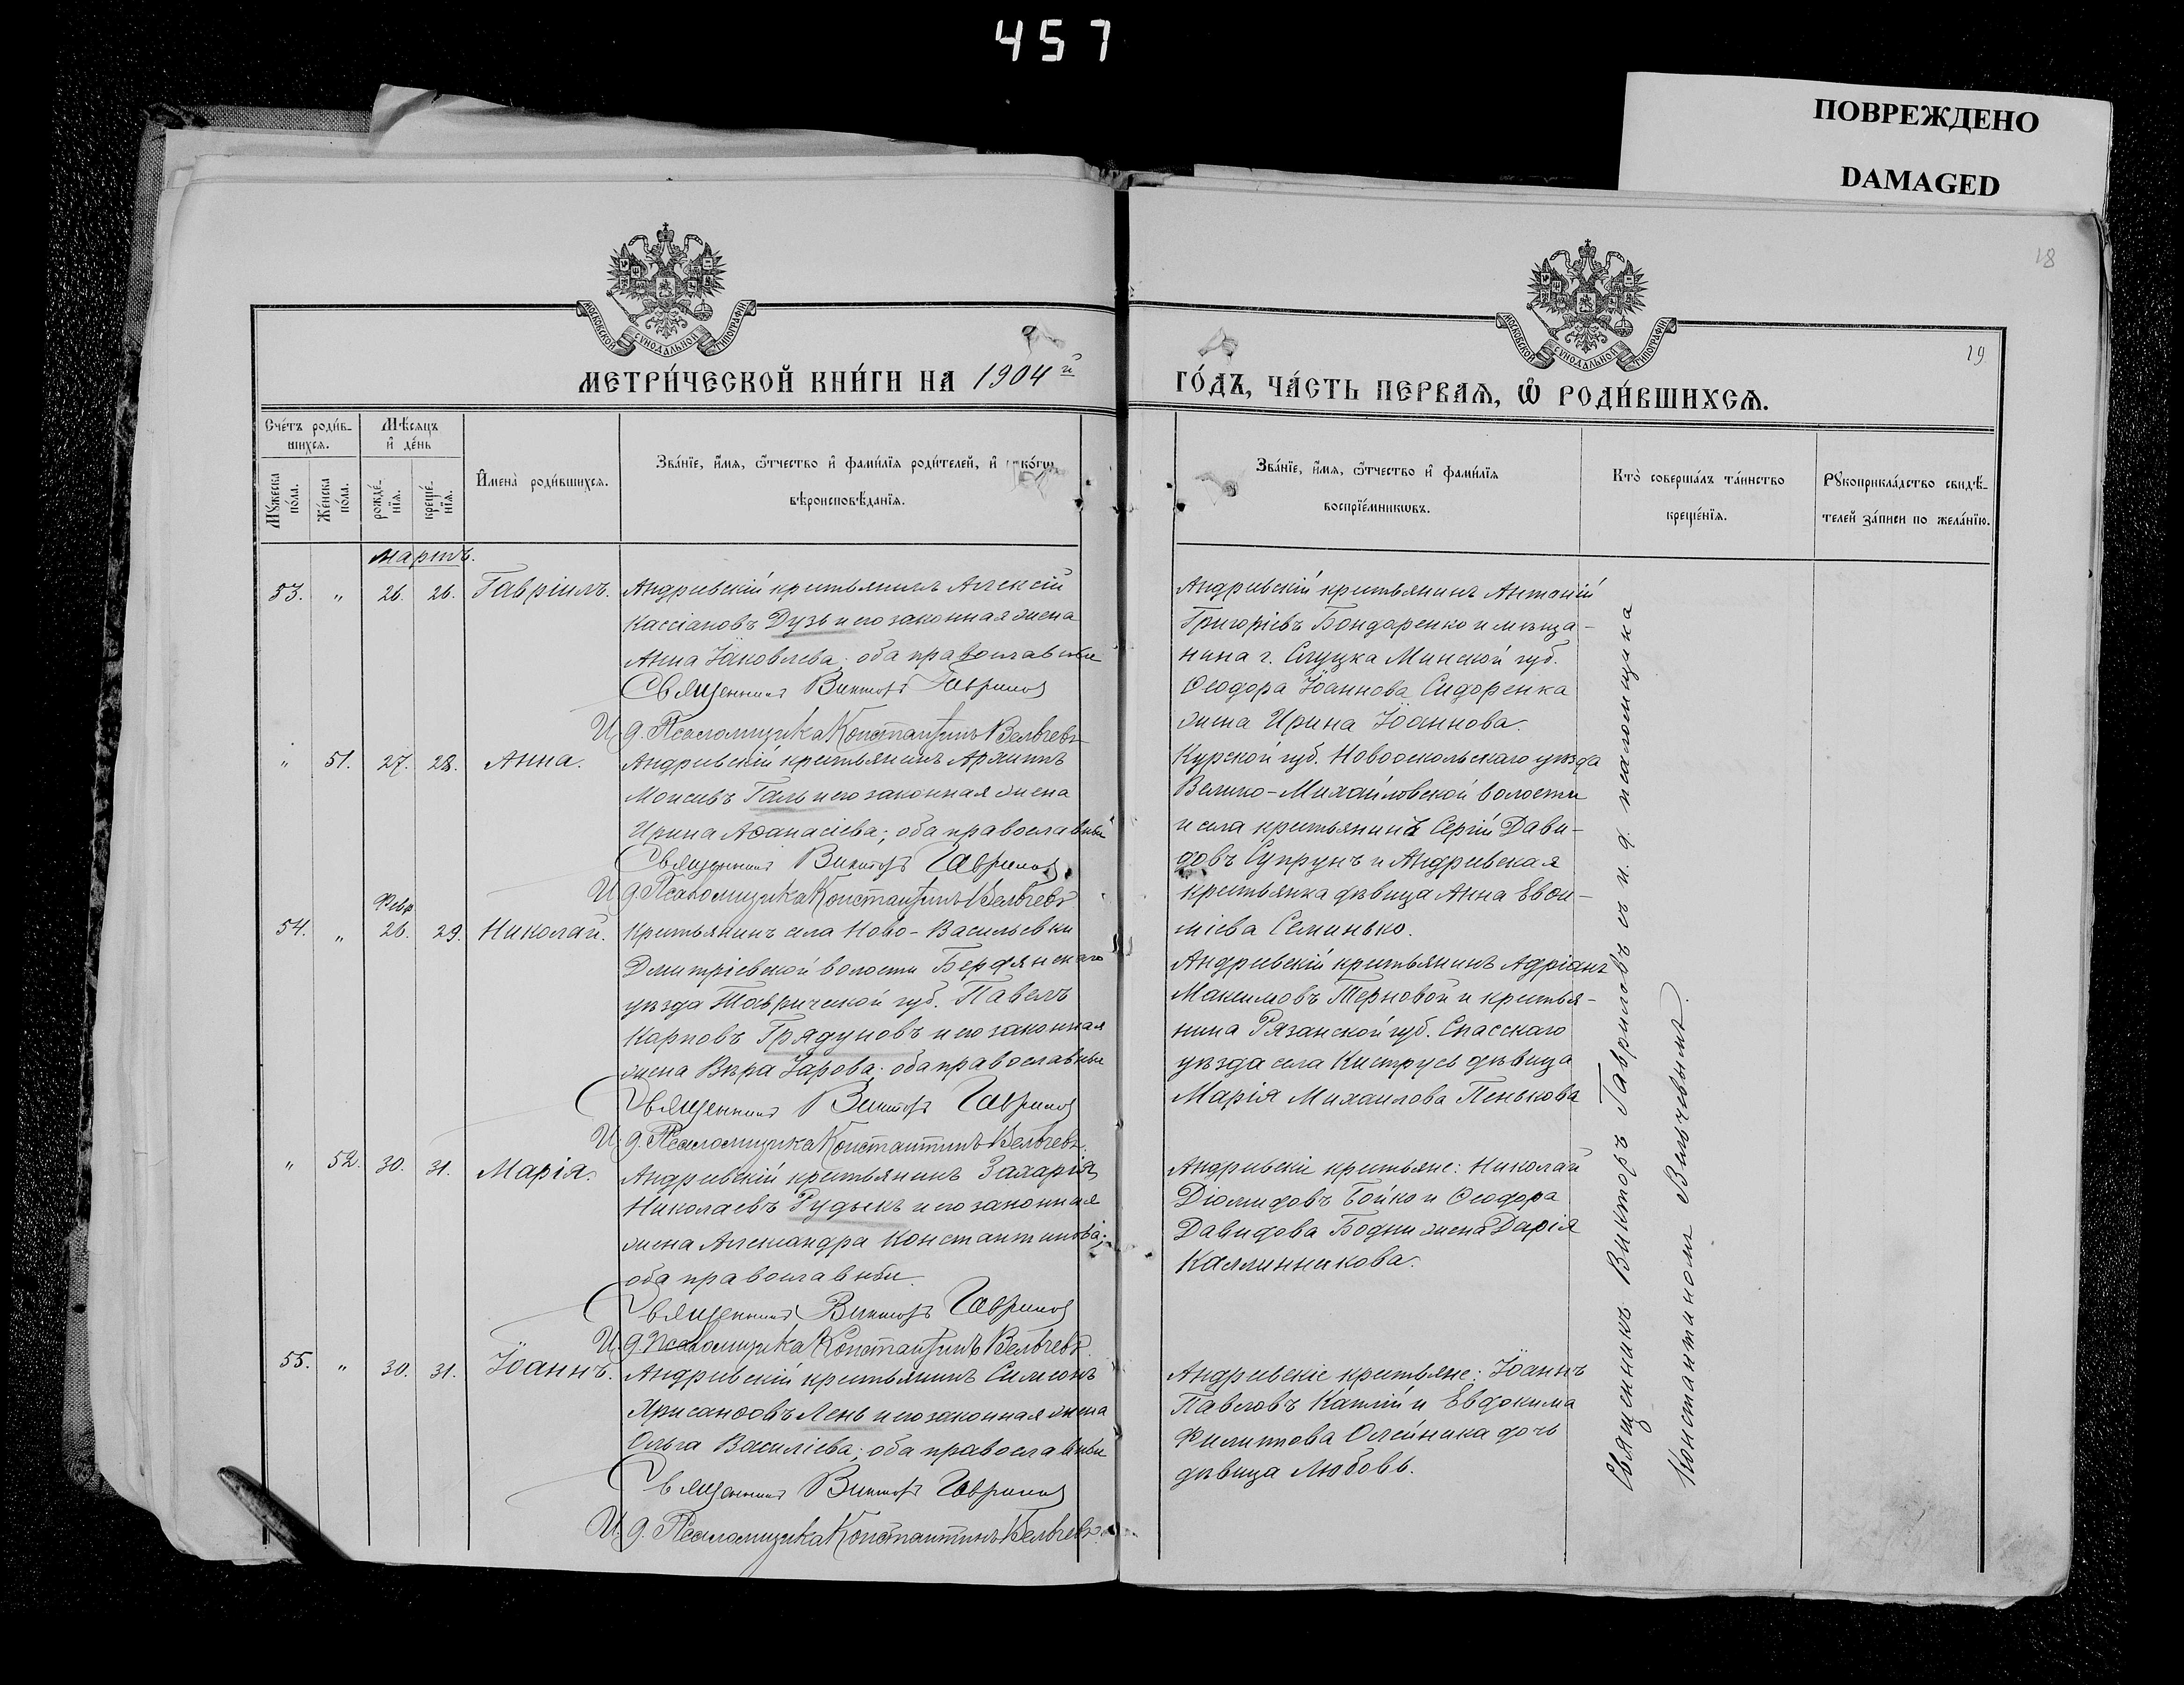 457
ПОВРЕЖДЕНО
DAMAGED
18
19
МОСКОВСКОЙ СѴНОДАЛЬНОЙ ТИПОГРАФІИ
МОСКОВСКОЙ СѴНОДАЛЬНОЙ ТИПОГРАФІИ
МЕТРИ́ЧЕСКОЙ КНИ́ГИ НА 1904й
ГО́ДЪ, ЧА́СТЬ ПЕРВАѦ, Ѡ҆ РОДИ́ВШИХСѦ.
Сче́тъ роди́в-
шихсѧ.
Мѣ́сѧцъ
и҆ де́нь
Мꙋ́жеска по́ла.
Же́нска по́ла.
рожде́-
нїѧ.
креще́-
нїѧ.
И҆мена̀ роди́вшихсѧ.
Зва́нїе, и҆́мѧ, ѻ҆́тчество и҆ фами́лїѧ роди́телей, и҆ како́гѡ
вѣроисповѣ́данїѧ.
Зва́нїе, и҆́мѧ, ѻ҆́тчество и҆ фами́лїѧ
воспрїе́мникѡвъ.
Кто̀ соверша́лъ та́инство
креще́нїѧ.
Рꙋкоприкла́дство свидѣ́-
телей за́писи по жела́нїю.
мартъ.
53. " 26. 26. Гавріилъ.
Андреевскій крестьянинъ Алексій
Кассіановъ Дузь и его законная жена
Анна Іаковлева; оба православные
Священникъ Викторъ Гавриловъ
И. д. Псаломщика Константинъ Вельчевъ
Андреевскій крестьянинъ Антоній
Григоріевъ Бондаренко и мѣща-
нина г. Слуцка Минской губ.
Ѳеодора Іоаннова Сидоренка
жена Ирина Іоаннова.
" 51. 27. 28. Анна.
Андреевскій крестьянинъ Архиппъ
Моисеевъ Галь и его законная жена
Ирина Аѳанасіева; оба православные
Священникъ Викторъ Гавриловъ
И. д. Псаломщика Константинъ Вельчевъ
Курской губ. Новооскольскаго уѣзда
Велико-Михайловской волости
и села крестьянинъ Сергій Дави-
довъ Супрунъ и Андреевская
крестьянка дѣвица Анна Евѳи-
міева Семинько.
Февр.
54. " 26. 29. Николай.
Крестьянинъ села Ново-Васильевки
Дмитріевской волости Бердянскаго
уѣзда Таврической губ. Павелъ
Карповъ Грядуновъ и его законная
жена Вѣра Іарова; оба православные
Священникъ Викторъ Гавриловъ
И. д. Псаломщика Константинъ Вельчевъ.
Андреевскій крестьянинъ Адріанъ
Максимовъ Терновой и крестья-
нина Рязанской губ. Спасскаго
уѣзда села Киструсъ дѣвица
Марія Михаилова Пенькова
" 52. 30. 31. Марія.
Андреевскій крестьянинъ Захарія
Николаевъ Рудыкъ и его законная
жена Александра Константинова;
оба православные.
Священникъ Викторъ Гавриловъ
И. д. Псаломщика Константинъ Вельчевъ.
Андреевскіе крестьяне: Николай
Діомидовъ Бойко и Ѳеодора
Давидова Бодни жена Дарія
Каллиникова.
55. " 30. 31. Іоаннъ.
Андреевскій крестьянинъ Симеонъ
Хрисанѳовъ Лень и его законная жена
Ольга Василіева; оба православные
Священникъ Викторъ Гавриловъ
И. д. Псаломщика Константинъ Вельчевъ.
Андреевскіе крестьяне: Іоаннъ
Павловъ Каплій и Евдокима
Филиппова Олейника дочь
дѣвица Любовь.
Священникъ Викторъ Гавриловъ съ и. д. псаломщика
Константиномъ Вельчевымъ.